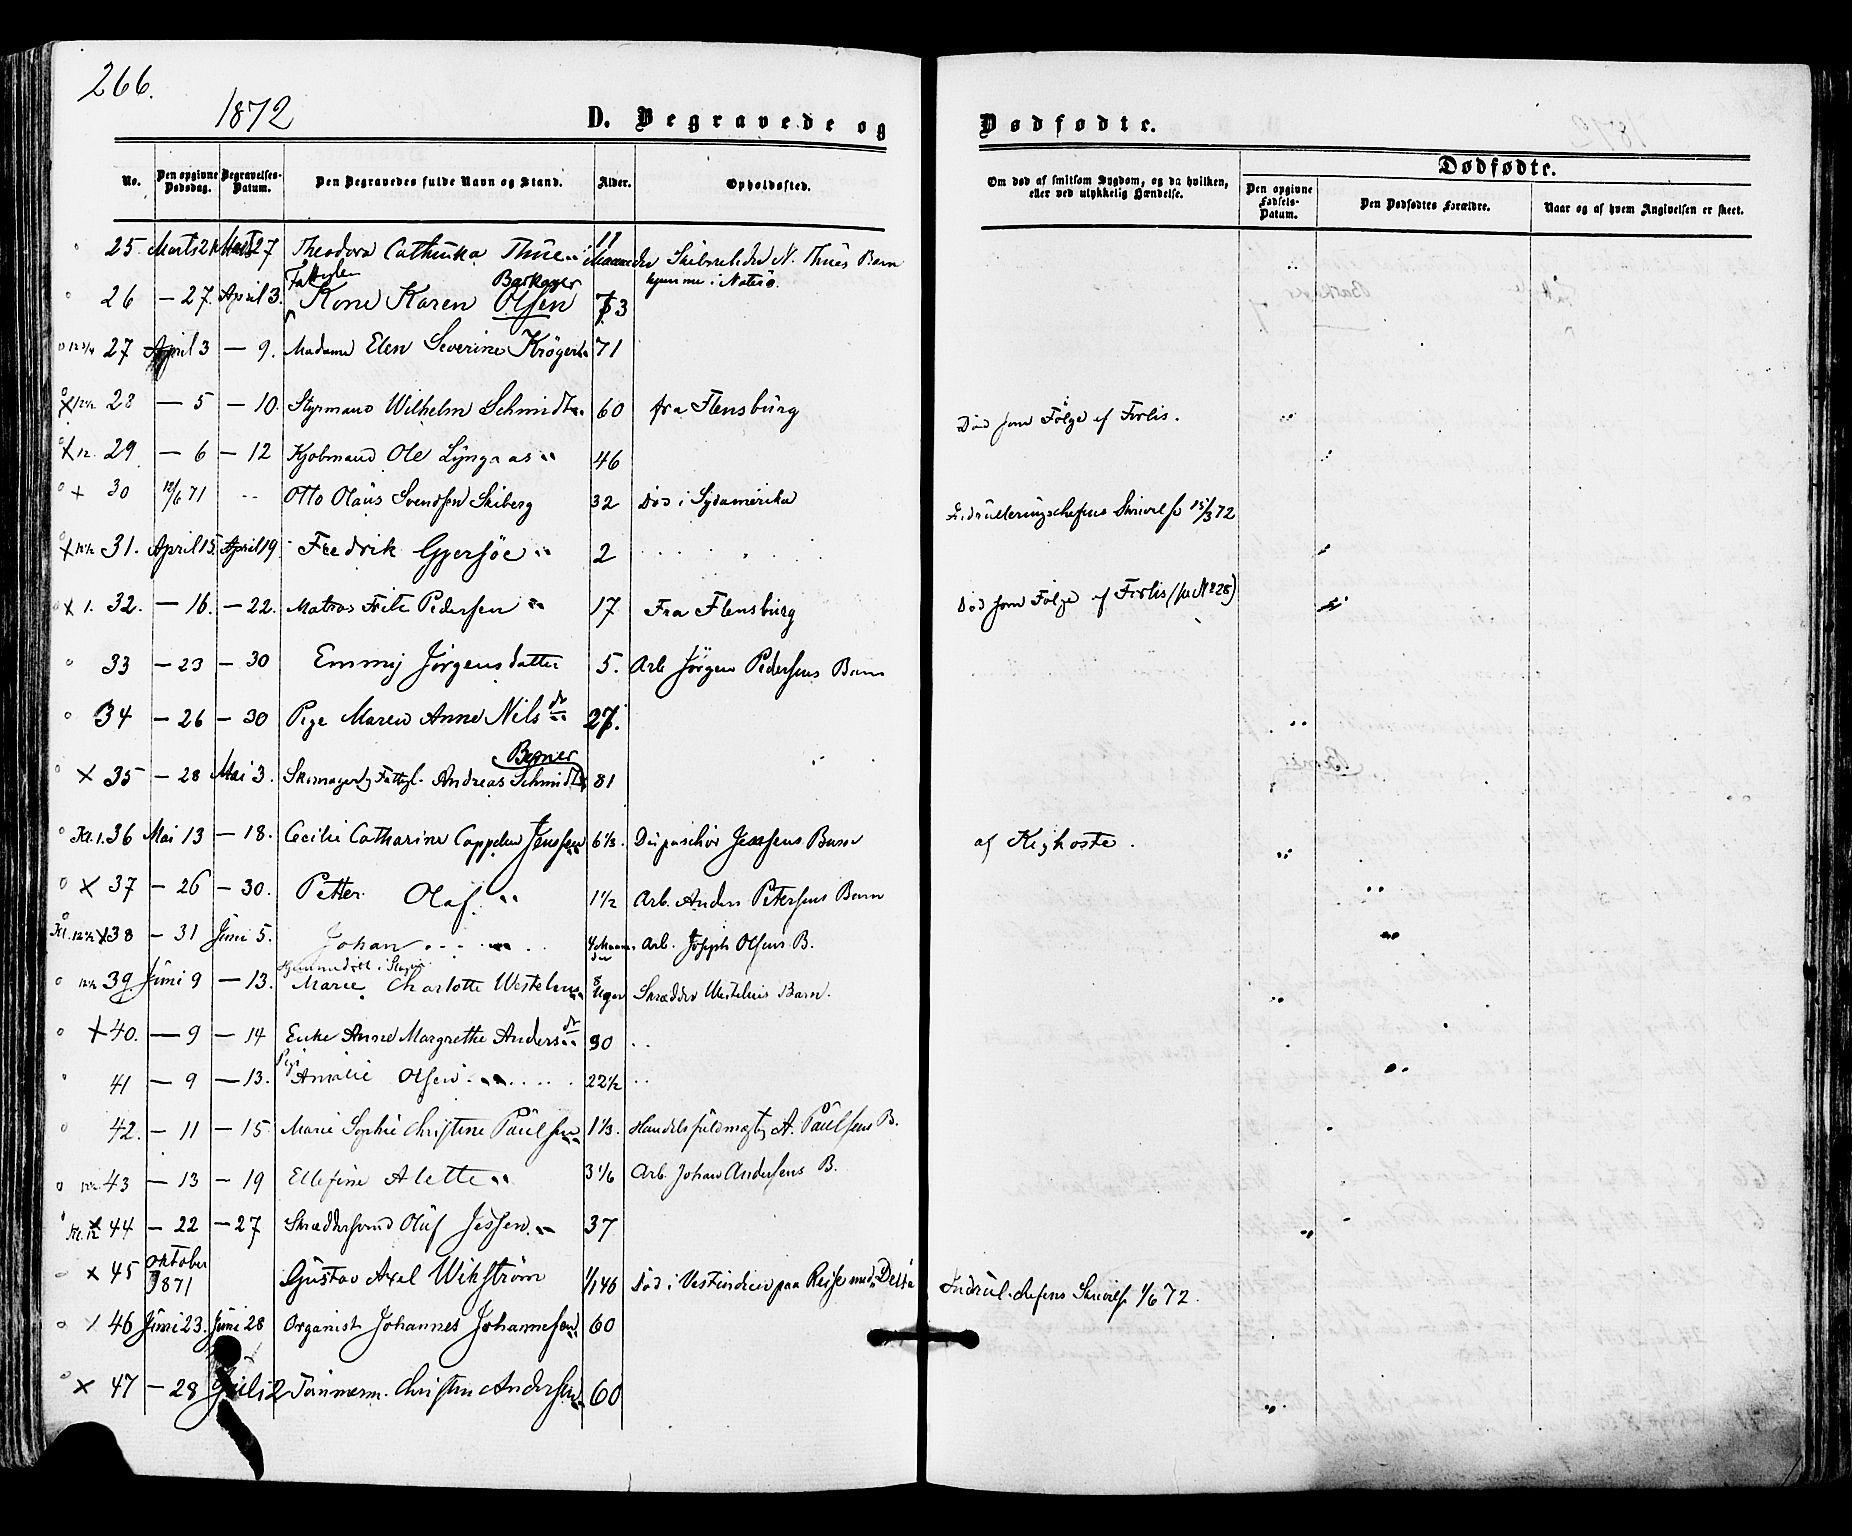 266.
1872
D. Begravede og Dødfødte.
No. Den opgivne Dødsdag. Begravelses-Datum. Den Begravedes fulde Navn og Stand. Alder. Opholdssted. Om død af smitsom Sygdom, og da hvilken, eller ved ulykkelig Hændelse. Dødfødte. Den opgivne Fødsels-Datum. Den Dødfødtes Forældre. Naar og af hvem Angivelsen er skeet.
25 Marts 21 Marts 27 Theodora Cathinka Thue 11 Maaneder N. Thues Barn
hjemme i
26 — 27. April 3. Kone Karen Olsen 73
27 April 3 — 9. Madame Elen Severine 71
28 — 5 — 10. Styrmand Wilhelm Schmidt 60 fra Flensburg Død som Følge af Forlis.
29 — 6 — 12 Kjøbmand Ole Lyngaas 46
30 12/6 71 Otto Olaus Svendsen Skiberg 32 Død i Sydamerika Indrulleringschefens Skrivelse 15/3 72
31. April 15. April 19. Fredrik Gjersøe 2
32. — 16. — 22. Matros Pedersen 17 Fra Flensburg Død som Følge af Forlis (se No 28)
33 — 23 — 30 Emmy Jørgensdatter 5. Arb Jørgen Pedersens Barn
34 — 26 — 30 Pige Maren Anne Nilsdr 27.
Berner
35 — 28 Mai 3. Skomager Fattigl. Andreas Schmidt 81
Kl. 1. 36 Mai 13 — 18. Cecilie Catharine Cappelen Jenssen 6 1/3. Barn af Kighoste.
37 — 26 — 30. Petter Olaf 1 1/2 Arb. Anders Petersens Barn
38 — 31 Juni 5. Johan 4 Maaneder Arb. Joseph Olsens B.
39 Juni 9 — 13. Marie Charlotte 8 Uger Skrædder Barn.
40. — 9 — 14 Enke Anne Margrethe Andersdr
41 — 9 — 13. Pige Amalie Olsen 22 1/2
42. — 11 — 15 Marie Sophie Christine Paulsen 1 1/3. Handelsfuldmægtig A. Paulsens B.
43 — 13 — 19 Ellefine Alette 3 1/6 Arb. Johan Andersens B.
44 — 22 — 27 Skræddersvend Oluf Jessen 37
45 Oktober 1871 Gustav Axel Wikstrøm Død i Vestindien paa Reise med Indrul.chefens Skrivelse 1/6 72.
46 Juni 23. Juni 28 Organist Johannes Johannesen 60
47 — 28 Juli 2 Tømmerm. Christen Andersen 60